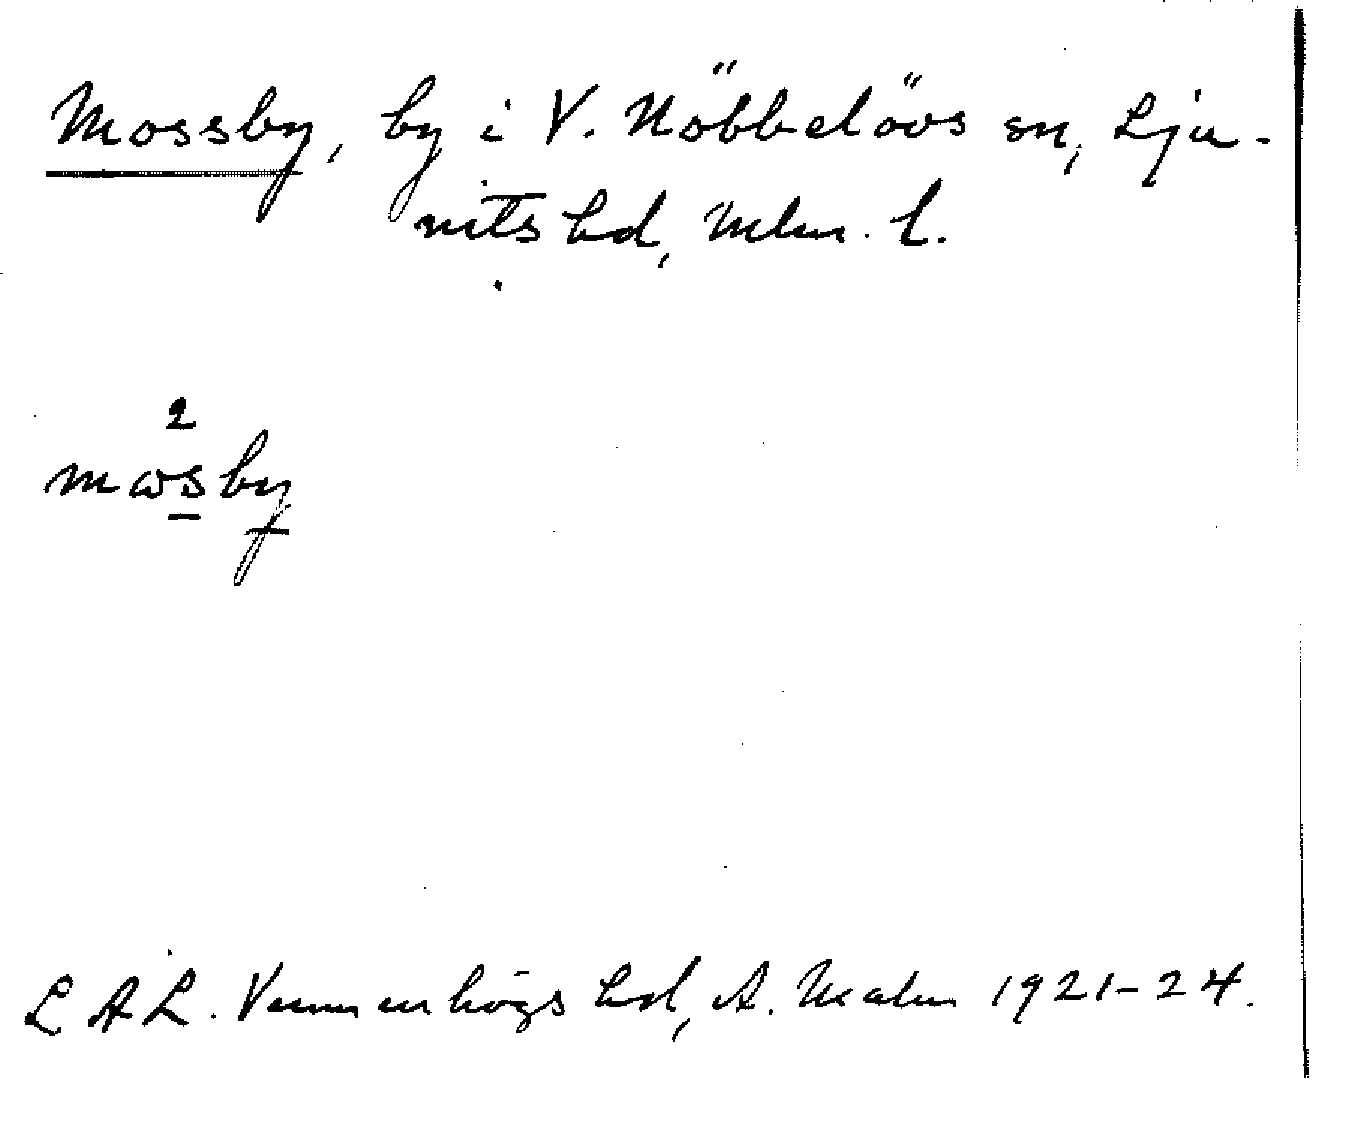 Mossby, by i V. Nöbbelövs sn, Lju-
nits hd, Mlm. l.
2
mɷsby
LAL. Vemmenhögs hd, A. Malm 1921-24.